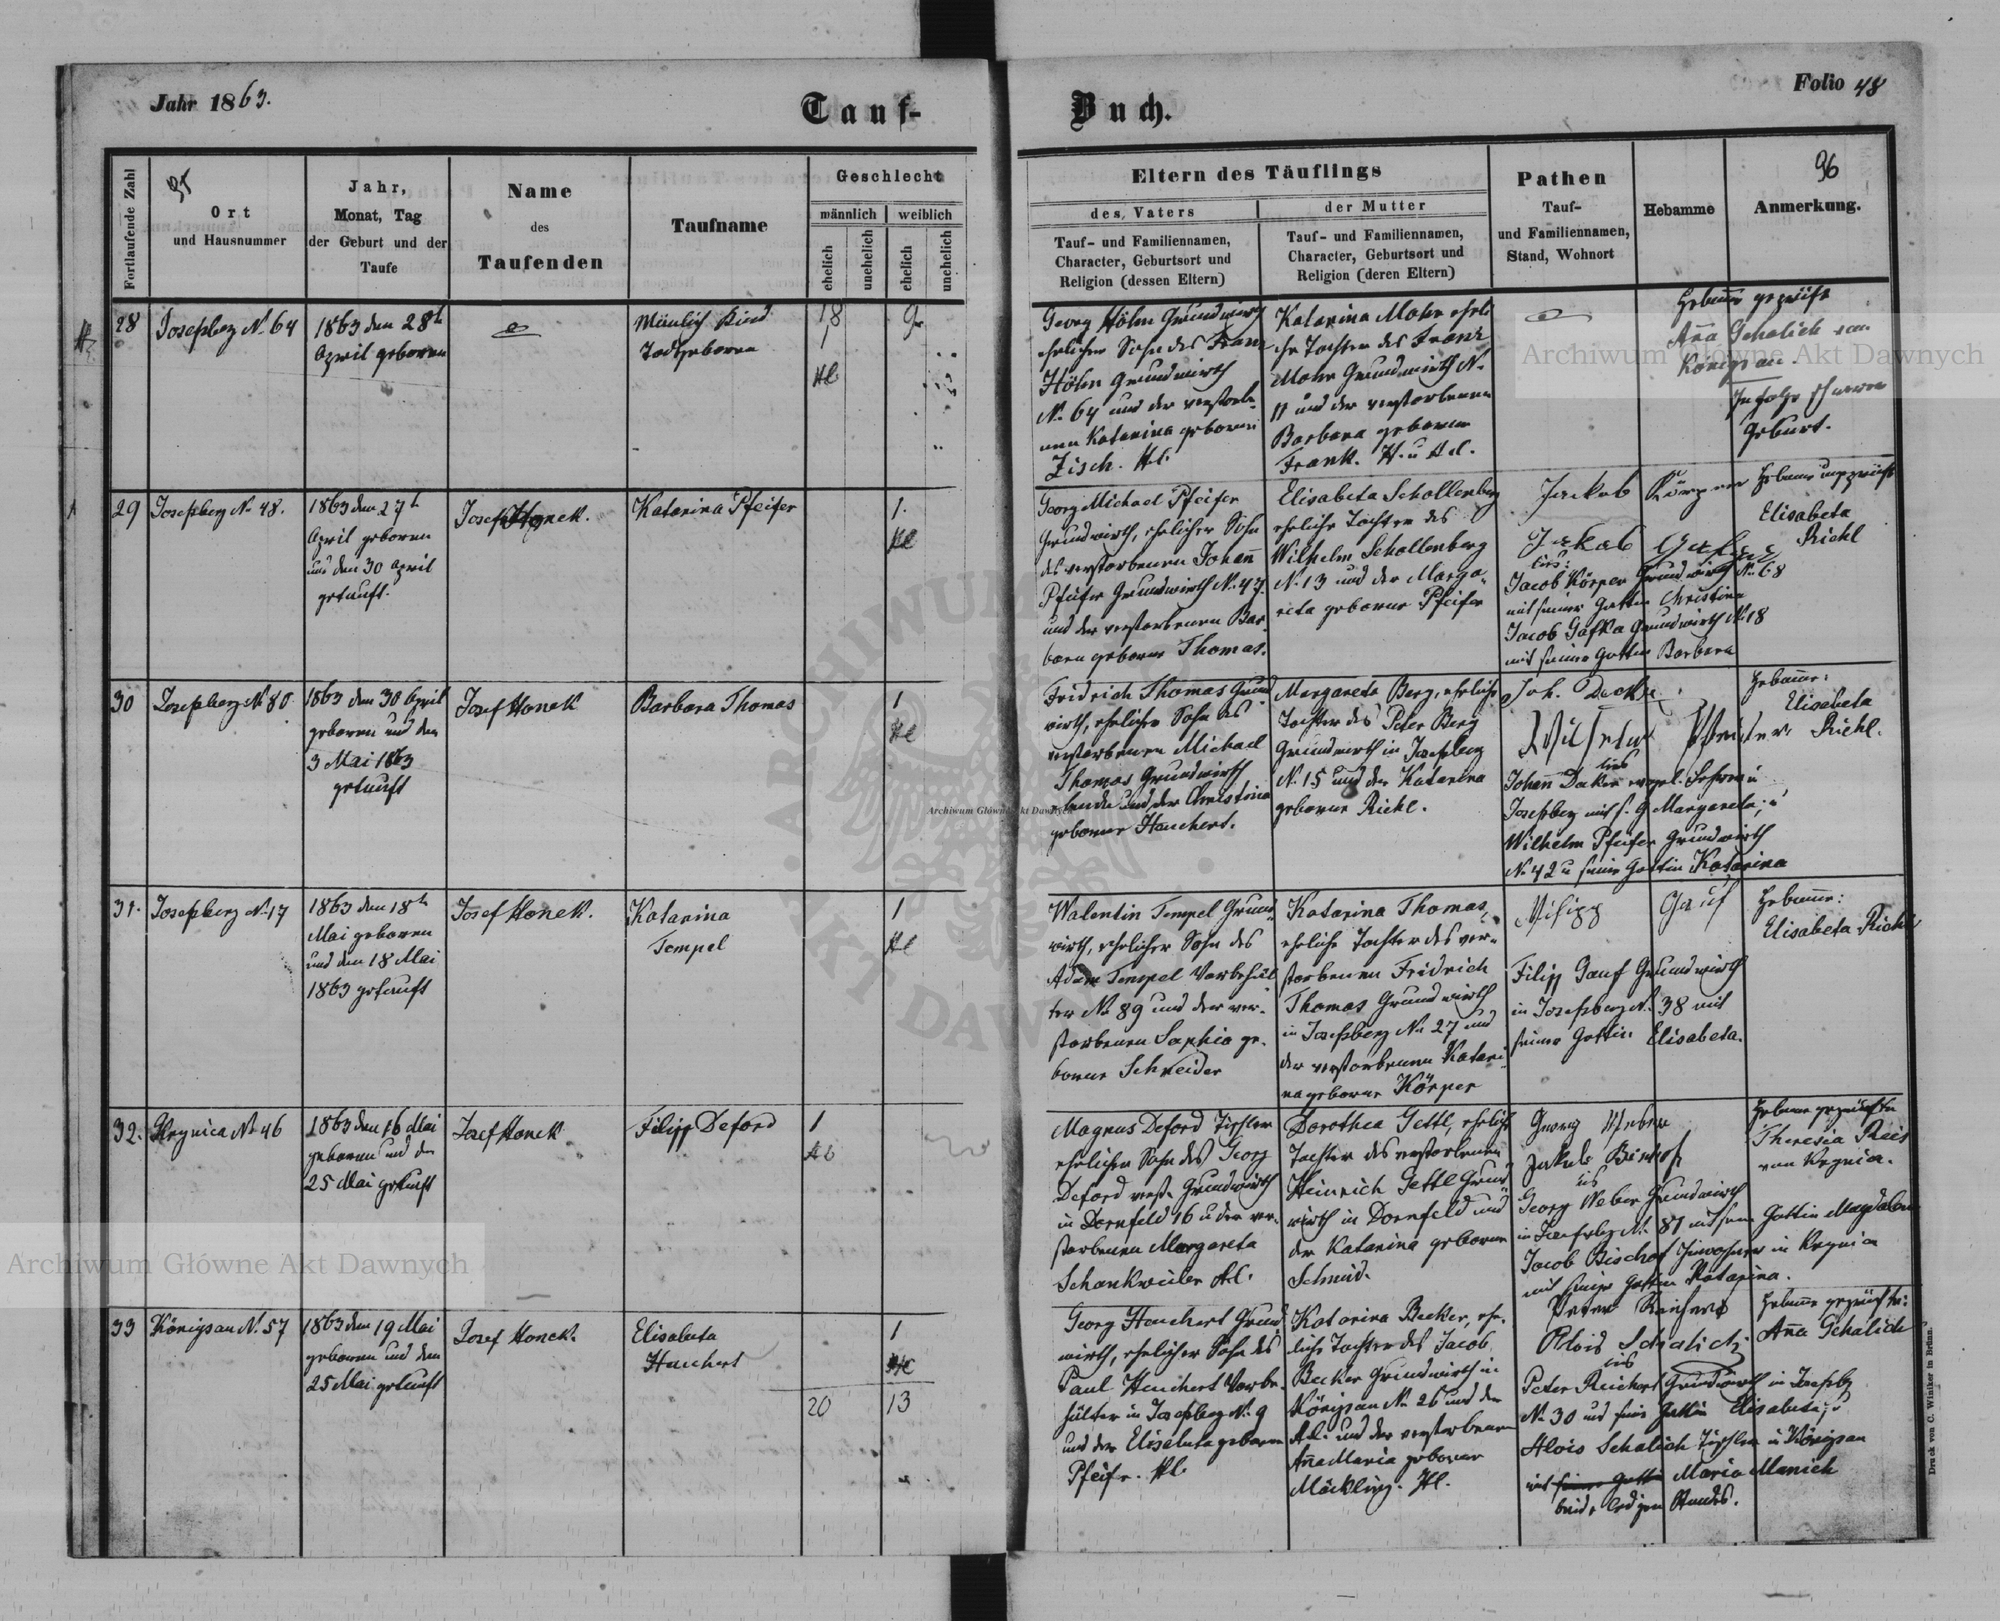 Jahr 1863.
Tauf-
Buch.
Folio 48
Fortlaufende Zahl
95
Ort
und Hausnummer
Jahr,
Monat, Tag
der Geburt und der
Taufe
Name
des
Taufenden
Taufname
Geschlecht
männlich
weiblich
ehelich
unehelich
ehelich
unehelich
Eltern des Täuflings
des Vaters
der Mutter
Tauf- und Familiennamen,
Character, Geburtsort und
Religion (dessen Eltern)
Tauf- und Familiennamen,
Character, Geburtsort und
Religion (deren Eltern)
Pathen
Tauf-
und Familiennamen,
Stand, Wohnort
Hebamme
96
Anmerkung.
28
Josefsberg No 64
1863 den 28ten
April geboren
Mänlich Kind
Todtgeboren
Georg Höhn Grundwirth
ehelicher Sohn des Franz
Höhn Grundwirth
No 64 und der verstorbe-
nen Katarina geborene
Zisch. H.C.
Katarina Mohr eheli-
che Tochter des Franz
Mohr Grundwirth No
11 und der verstorbenen
Barbara geborene
Frank. H. u H.C.
Hebame geprüft
Ana Schalick von
Königsau
Infolge schwerer
Geburt.
29
Josefsberg No 48.
1863 den 27ten
April geboren
und den 30 April
getauft.
Josef Honek.
Katarina Pfeifer
1.
HC
Georg Michael Pfeifer
Grundwirth, ehelicher Sohn
des verstorbenen Johann
Pfeifer Grundwirth No 47.
und der verstorbenen Bar-
bara geborene Thomas.
Elisabeta Schollenberg
eheliche Tochter des
Wilhelm Schollenberg
No 13 und der Marga-
reta geborene Pfeifer
Jackob Körper
Jakob Gafka
Jacob Körper Grundwirth No 68
mit seiner Gattin Christina
Jacob Gafka Grundwirth No 18
mit seiner Gattin Barbara
Hebame ungeprüft
Elisabeta
Richl
30
Josefsberg No 80
1863 den 30 April
geboren und den
3 Mai 1863
getauft
Josef Honek
Barbara Thomas
1
HC
Fridrich Thomas Grund
wirth, ehelicher Sohn des
verstorbenen Michael
Thomas Grundwirth
und der Christina
geborene Hauchert.
Margareta Berg, eheliche
Tochter des Peter Berg
Grundwirth in Josefsberg
No 15 und der Katarina
geborene Richl.
Joh. Decker
Wilhelm Pfeifer
Johann Daker evgel. Lehrer in
Josefsberg mit s. G Margareta; u
Wilhelm Pfeifer Grundwirth
No 42 u seine Gattin Katarina
Hebame:
Elisabeta
Richl.
31.
Josefsberg No 17
1863 den 18ten
Mai geboren
und den 18 Mai
1863 getauft
Josef Honek.
Katarina
Tempel
1
HC
Walentin Tempel Grund-
wirth, ehelicher Sohn des
Adam Tempel Vorbehäl-
ter No 89 und der ver-
storbenen Sophia ge-
borene Schneider
Katarina Thomas,
eheliche Tochter des ver-
storbenen Fridrich
Thomas Grundwirth
in Josefsberg No 27 und
der verstorbenen Katari-
na geborene Körper
Philipp Gauf
Filipp Gauf Grundwirth
in Josefsberg No 38 mit
seiner Gattin Elisabeta.
Hebame:
Elisabeta Richl
32.
Krynica No 46
1863 den 16 Mai
geboren und den
25 Mai getauft
Josef Honek
Filipp Deford
1
HC
Magnus Deford Tischler
ehelicher Sohn des Georg
Deford verst. Grundwirth
in Dornfeld 16 u der ver-
storbenen Margareta
Schankweiler H.C.
Dorothea Gettl, eheliche
Tochter des verstorbenen
Heinrich Gettl Grund
wirth in Dornfeld und
der Katarina geborene
Schmid.
Georg Weber
Jakob Bischof
Georg Weber Grundwirth
in Josefsbg No 87 mit sein Gattin Magdalena
Jacob Bischof Inwohner in Krynica
mit seiner Gattin Katarina.
Hebame geprüfte
Theresia Reis
von Krynica.
33
Königsau No 57
1863 den 19 Mai
geboren und den
25 Mai getauft
Josef Honek.
Elisabeta
Hauchert
1
HC
20
13
Georg Hauchert Grund
wirth, ehelicher Sohn des
Paul Hauchert Vorbe-
hälter in Josefsberg No 9
und der Elisabeta geborene
Pfeifr. HC.
Katarina Becker, ehe-
liche Tochter des Jacob
Becker Grundwirth in
Königsau No 26 und der
und der verstorbenen
Anna Maria geborene
Mäckling. HC.
Peter Reichert
Alois Schalick
Peter Reichert Grundwirth in Josefsbg
No 30 und seine Gattin Elisabeta; u
Alois Schalick Tischler in Königsau
mit seiner Gattin Maria Manich
beide ledigen Standes.
Hebame geprüfte:
Anna Schalick
Druck von C. Winiker in Brünn.
Archiwum Główne Akt Dawnych
Archiwum Główne Akt Dawnych
Archiwum Główne Akt Dawnych
ARCHIWUM
AKT DAWN